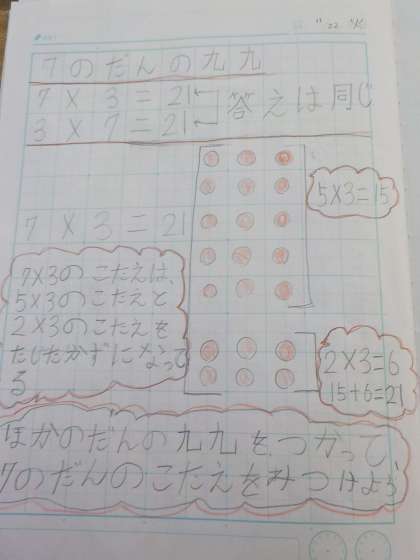 11 22
7のだんの九九
7×3=21
3×7=21
答えは同じ
5×3=15
7×3=21
7×3のこたえは、
5×3のこたえと
2×3のこたえを
たしたかずになって
る
2×3=6
15+6=21
ほかのだんの九九をつかって
7のだんのこたえをみつけよう